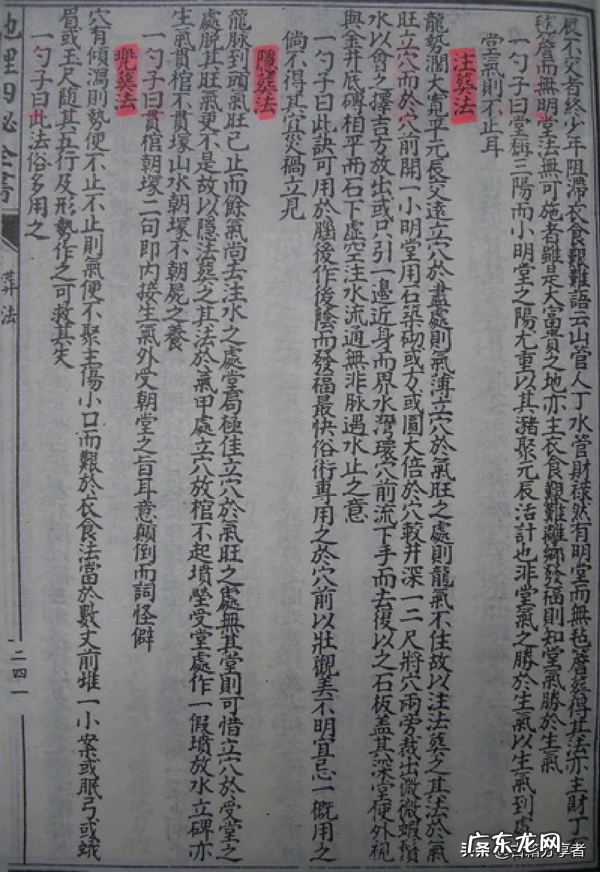 辰不欠者終少年阻滯衣食艱難語云山管人丁水管財祿然有明堂而無毡簷葬得其法亦主財丁
毡簷而無明堂法無可施者雖是大富貴之地亦主衣食艱難離鄉發福則知堂氣勝於生氣
一勺子曰堂稱三陽而小明堂之陽尤重以其豬聚元辰活計也非堂氣之勝於生氣以生氣到處
堂氣則不止耳
注葬法
龍勢濶大寬平元長交遠立穴於盡處則氣薄立穴於氣旺之處則龍氣不住故以注法葬之其法於氣
旺立穴而於穴前開一小明堂用石染砌或方或圓大倍於穴較井深一二尺將穴兩旁裁出微微蝦鬚
水以會之擇吉方放出或只引一邊近身而界水灣環穴前流下手而去復以之石板盖其深堂使外視
與金井底磚相平而石下虛空注水流通無非脉過水止之意
一勺子曰此訣可用於腦後作後蔭而發福最快俗術專用之於穴前以壯觀美不明宜忌一概用之
倘不得其宜災禍立見
隱葬法
龍脉到頭氣旺已止而餘氣尚去注水之處堂局極佳立穴於氣旺之處無其堂則可惜立穴於受堂之
處脫其旺氣更不是故以隱法葬之其法於氣甲處立穴放棺不起墳塋受堂處作一假墳放水立碑亦
生氣貫棺不貫塚山水朝塚不朝屍之養
一勺子曰貫棺朝塚二句即內接生氣外受朝堂之旨耳意顛倒而詞怪僻
兜葬法
穴有傾瀉則勢便不止不止則氣便不聚主陽小口而艱於衣食法當於數丈前堆一小案或眠弓或蛾
眉或玉尺隨其五行及形勢作之可救其失
一勺子曰此法俗多用之
地理囚秘全書
葬法
二四一
头条@古籍分享者
广东龙网